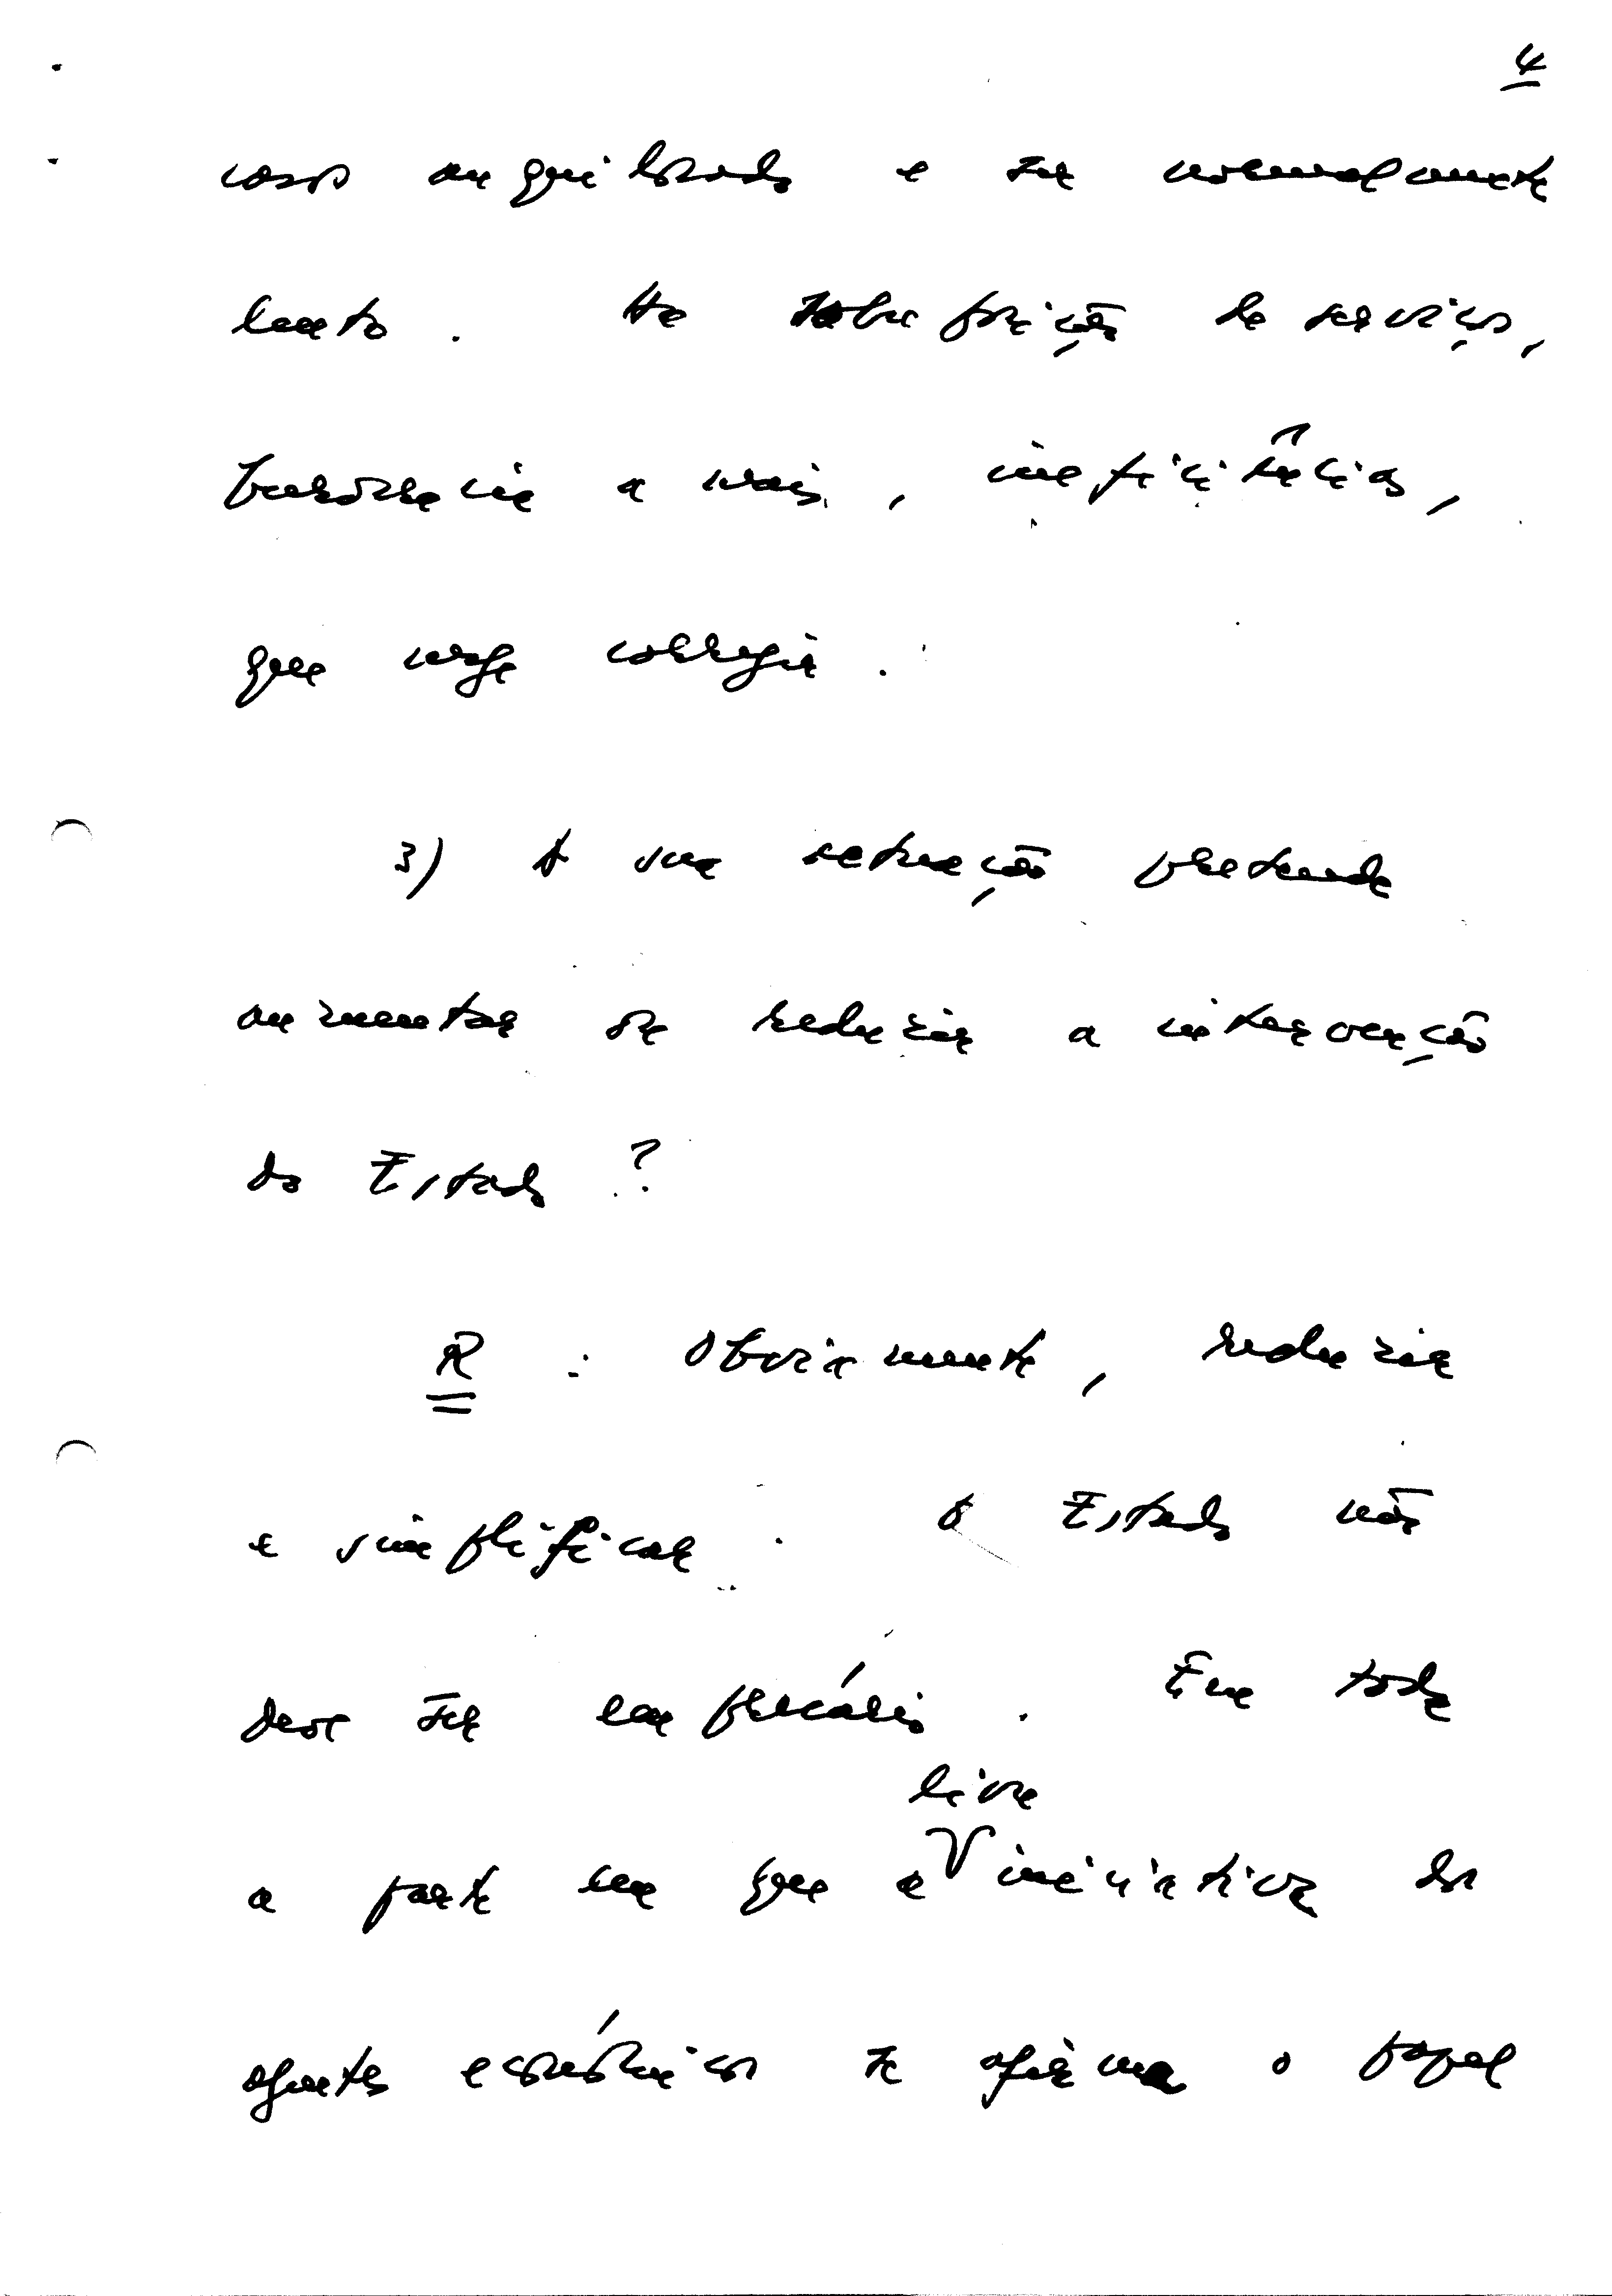 4
caso anquilosado e ser normalmente
lento. Há sobreposição de serviços,
burocracia a mais, ineficiências,
que urge corrigir.
3) A sua actuação pretende
aumentar ou reduzir a intervenção
do Estado?
R: Obviamente, reduzir
e simplificar. O Estado não
deve ser empresário. Em toda
livre
a parte em que a iniciativa dos
agentes económicos se afirma o papel